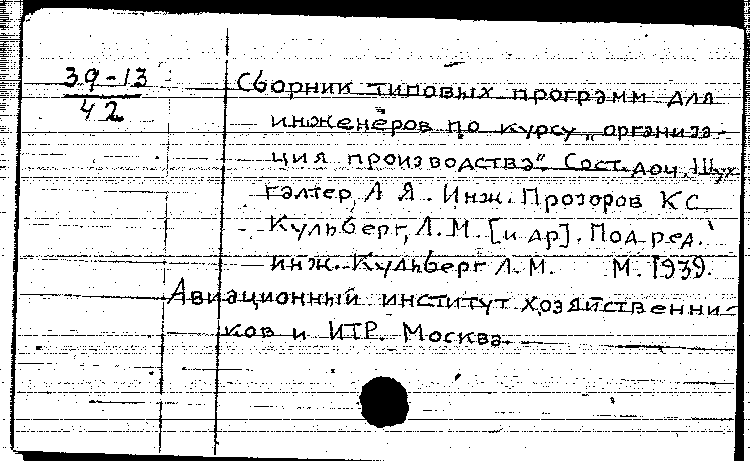 39-13
42
Сборник типовых программ для
инженеров по курсу „организа-
ция производства“. Сост. доч. Шух
галтер, Л Я. Инж. Прозоров К С
Кульберг, Л. М. [и др]. Под ред.
инж. Кульберг Л. М. М. 1939.
Авиационный институт хозяйственни-
ков и ИТР. Москва.